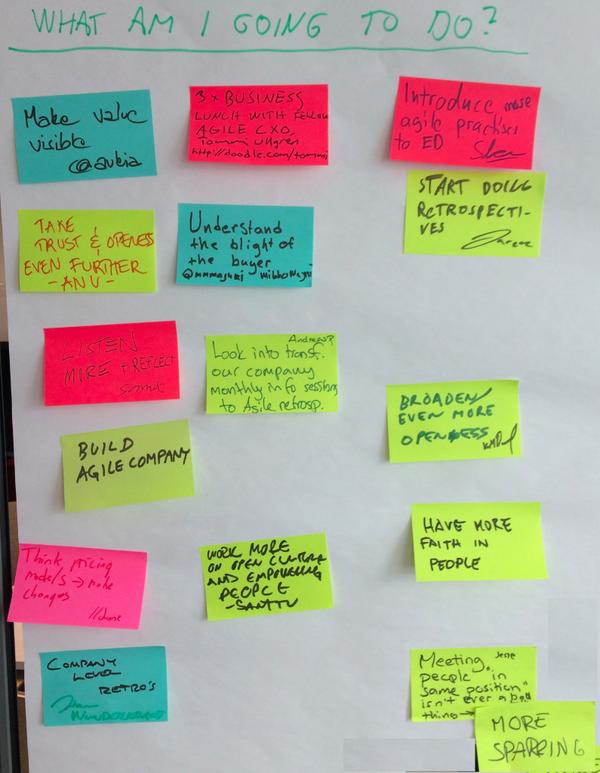 WHAT AM I GOING TO DO?
Make value
visible
@avkia
3x BUSINESS
LUNCH WITH FELLOW
AGILE CXO,
Tommi Ullgren
http://doodle.com/tommi
Introduce more
agile practises
to ED
START DOING
RETROSPECTI-
VES
TAKE
TRUST & OPENESS
EVEN FURTHER
-ANU-
Understand
the blight of
the buyer
LISTEN
MORE + REFLECT
Look into transf.
our company
monthly info sessions
to Agile retrosp.
BROADEN
EVEN MORE
OPENESS
BUILD
AGILE COMPANY
HAVE MORE
FAITH IN
PEOPLE
Think pricing
models → make
changes
WORK MORE
ON OPEN CULTURE
AND EMPOWERING
PEOPLE
-SANTTU
COMPANY
LEVEL
RETRO'S
WUNDERKRAUT
Meeting
people "in
same position"
isn't ever a bad
thing →
MORE
SPARRING